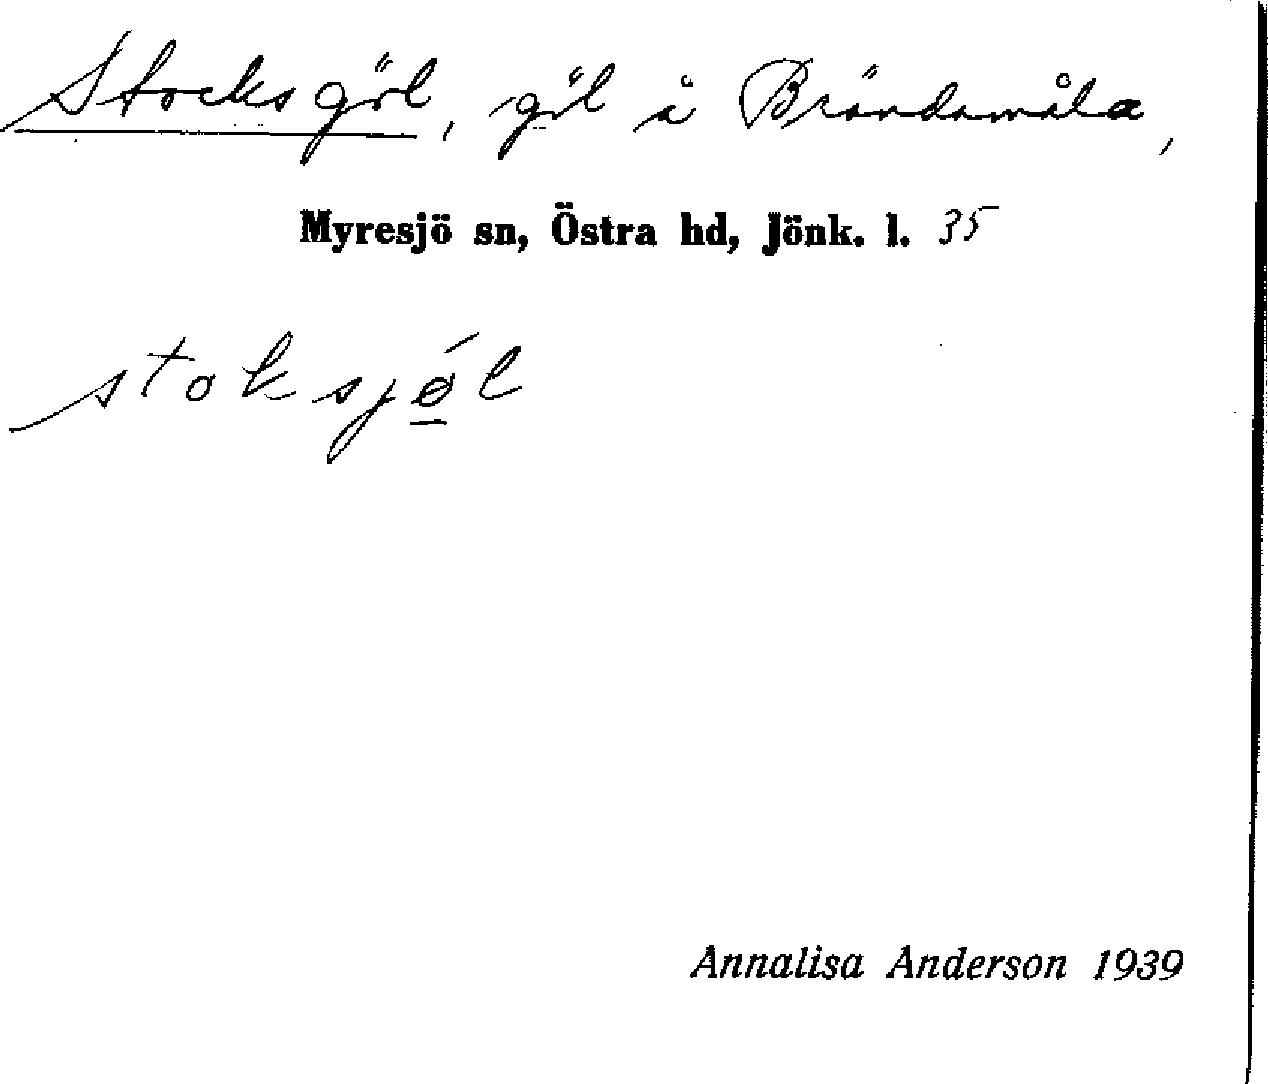 Stocksgöl, göl å Brändamåla,
Myresjö sn, Östra hd, Jönk. l. 35
stoksjǿ̲l
Annalisa Anderson 1939